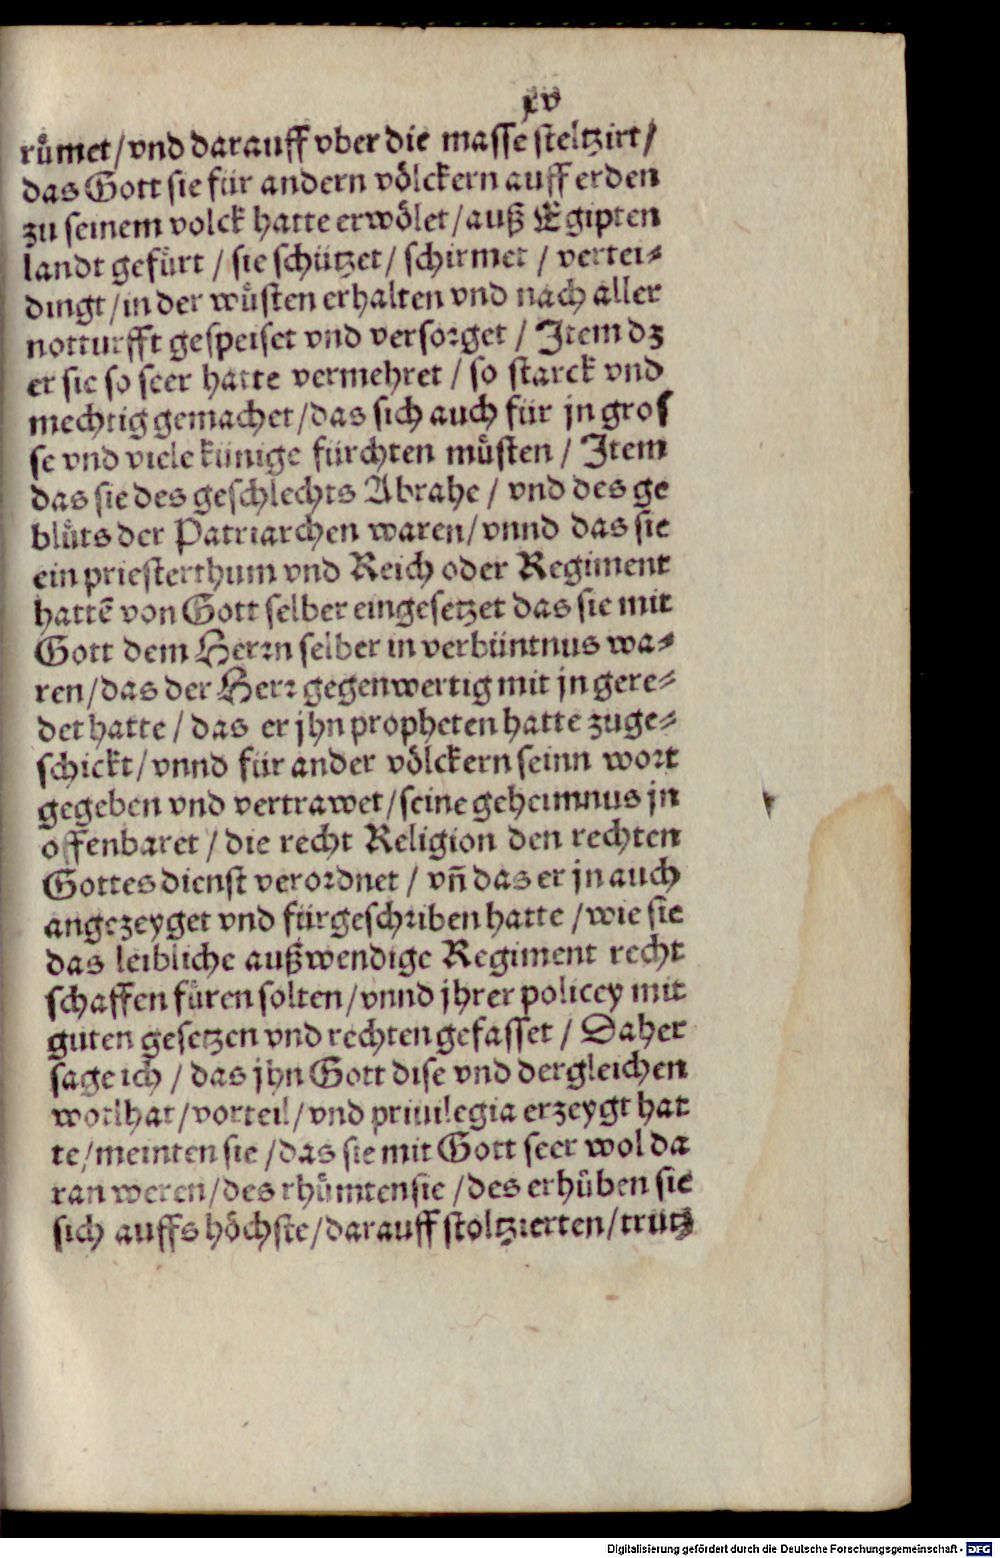 xv
ruͤmet/vnd darauff vber die masse steltzirt/
das Gott sie für andern voͤlckern auff erden
zu seinem volck hatte erwoͤlet/auß Egipten
landt gefuͤrt / sie schützet/ schirmet / vertei⸗
dingt/in der wuͤsten erhalten vnd nach aller
notturfft gespeiset vnd versorget / Item dz
er sie so seer hatte vermehret / so starck vnd
mechtig gemachet/das sich auch für jn gros
se vnd viele künige fürchten muͤsten / Item
das sie des geschlechts Abrahe / vnd des ge
bluͤts der Patriarchen waren/vnnd das sie
ein priesterthum vnd Reich oder Regiment
hattē von Gott selber eingesetzet das sie mit
Gott dem Herrn selber in verbüntnus wa⸗
ren/das der Herr gegenwertig mit jn gere⸗
det hatte / das er jhn propheten hatte zuge⸗
schickt/vnnd für ander voͤlckern seinn wort
gegeben vnd vertrawet/seine geheimnus jn
offenbaret / die recht Religion den rechten
Gottes dienst verordnet / vñ das er jn auch
angezeyget vnd fürgeschriben hatte /wie sie
das leibliche außwendige Regiment recht
schaffen fuͤren solten/vnnd jhrer policey mit
guten gesetzen vnd rechten gefasset / Daher
sage ich / das jhn Gott dise vnd dergleichen
wotlhat/vorteil/vnd priuilegia erzeygt hat
te/meinten sie /das sie mit Gott seer wol da
ran weren/des rhuͤmten sie /des erhuͤben sie
sich auffs hoͤchste/darauff stoltzierten/trutz
Digitalisierung gefördert durch die Deutsche Forschungsgemeinschaft - DFG